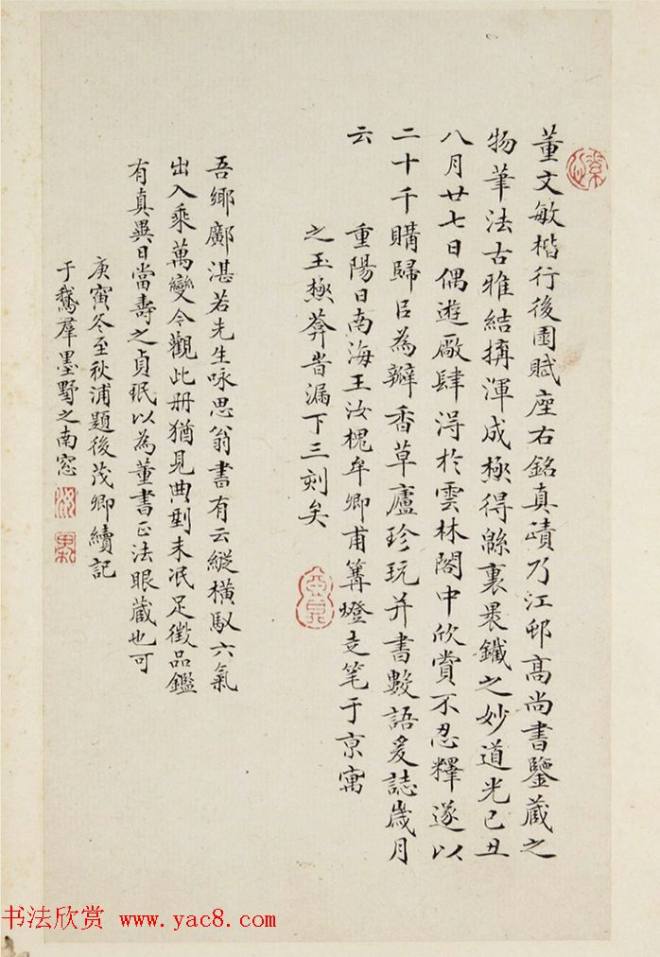 董文敏楷行後園賦座右銘真蹟乃江邨高尚書鑒藏之
物筆法古雅結搆渾成極得緜裏裹鐵之妙道光己丑
八月廿七日偶遊廠肆淂於雲林閣中欣賞不忍釋遂以
二十千購歸㠯為瓣香草廬珍玩并書數語爰誌歲月
云
重陽日南海王汝槐牟卿甫篝燈走笔于京寓
之玉極莽旹漏下三刻矣
吾鄉鄺湛若先生咏思翁書有云縱橫馭六氣
出入乘萬變今觀此册猶見典型未泯足徵品鑑
有真異日當壽之貞珉以為董書正法眼藏也可
庚寅冬至秋浦題後茂卿續記
于鵝羣墨墅之南窓
书法欣赏 www.yac8.com